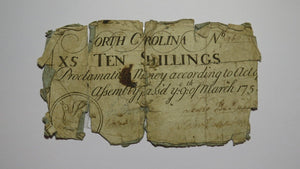 ORTH CAROLINA No
XS TEN SHILLINGS
Proclamation Money according to Act of
Assembly, passd ye 9th of March 175